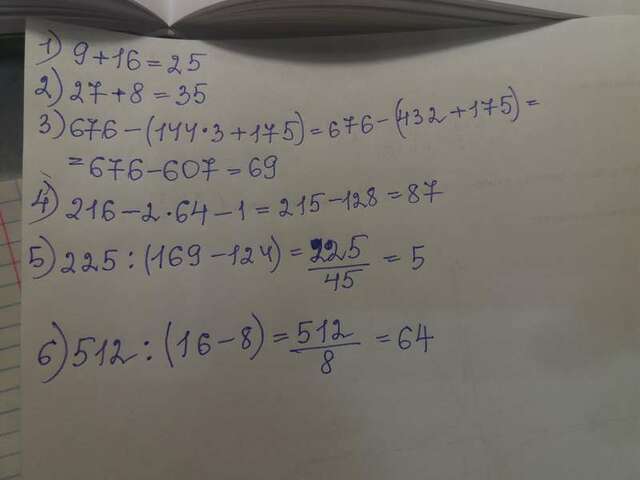 1) 9+16=25
2) 27+8=35
3) 676-(144·3+175)=676-(432+175)=
=676-607=69
4) 216-2·64-1=215-128=87
5) 225:(169-124)=225/45=5
6) 512:(16-8)=512/8=64